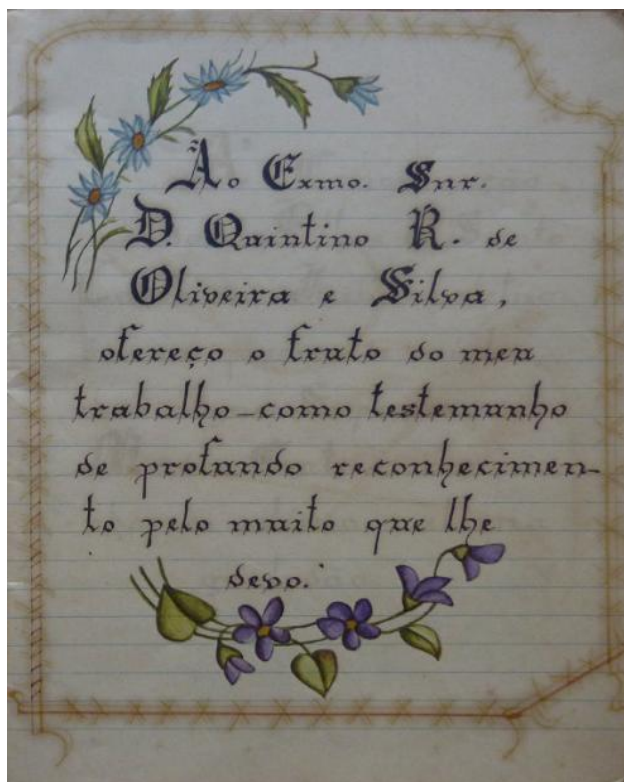 Ao Exmo. Snr.
D. Quintino R. de
Oliveira e Silva,
ofereço o fruto do meu
trabalho-como testemunho
de profundo reconhecimen-
to pelo muito que lhe
devo.